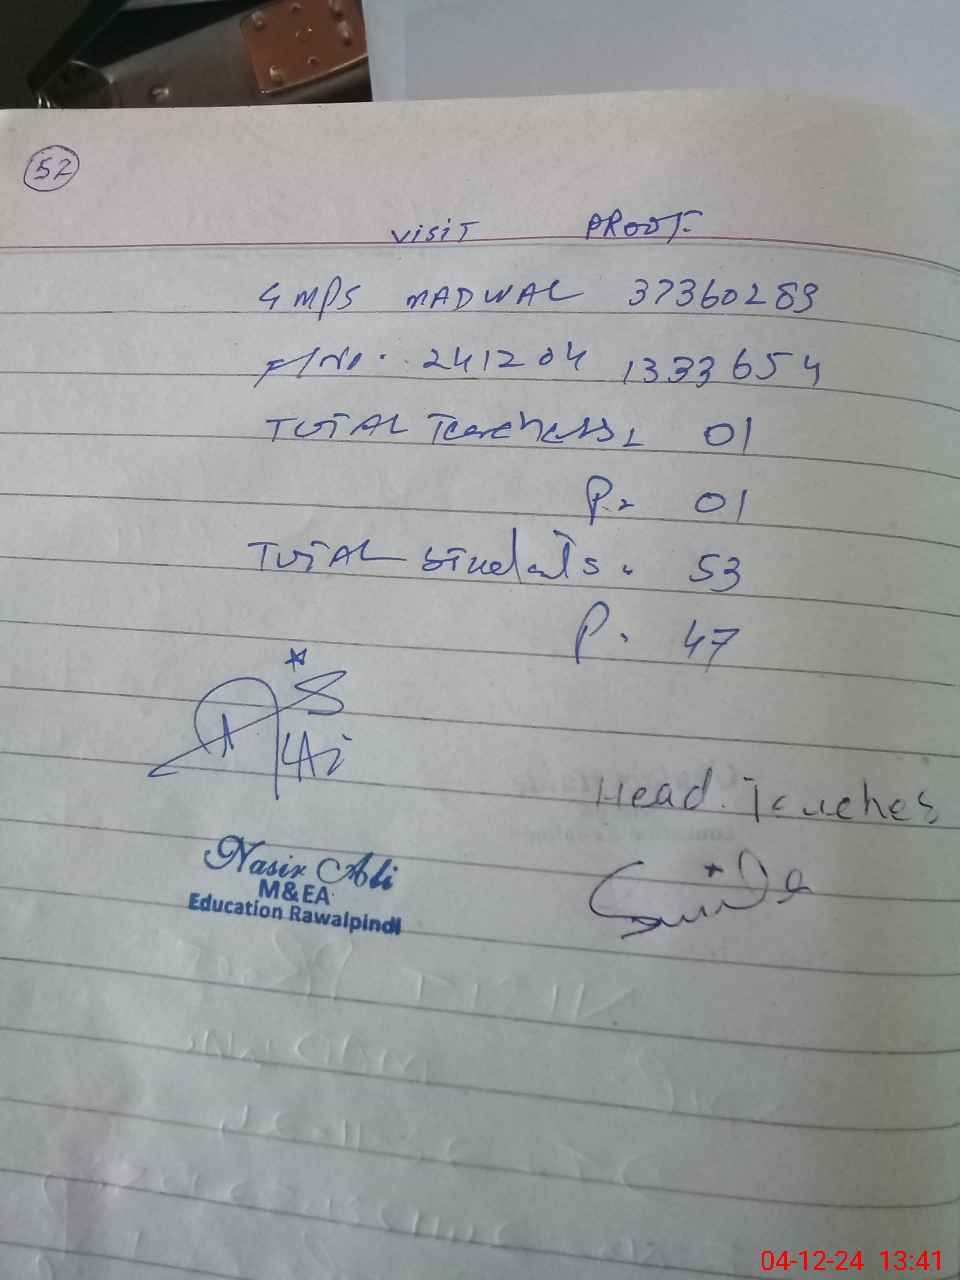 52
VISIT PROOF
GMPS MADWAL 37360289
F/No. 241204 1333654
TOTAL Teachers = 01
P = 01
TOTAL Students = 53
P = 47
Head Teacher
Nasir Ali
M&EA
Education Rawalpindi
04-12-24 13:41